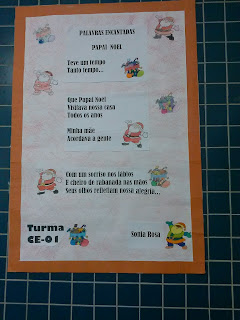 PALAVRAS ENCANTADAS
PAPAI NOEL
Teve um tempo
Tanto tempo...
Que Papai Noel
Visitava nossa casa
Todos os anos
Minha mãe
Acordava a gente
Com um sorriso nos lábios
E cheiro de rabanada nas mãos
Seus olhos refletiam nossa alegria...
Turma
CE-01
Sonia Rosa